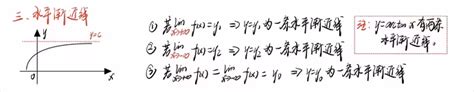 三、水平渐近线
y
y=c
0
x
① 若lim x→+∞ f(x)=y₁ ⇒ y=y₁为一条水平渐近线
② 若lim x→-∞ f(x)=y₂ ⇒ y=y₂为一条水平渐近线
③ 若lim x→+∞ f(x)=lim x→-∞ f(x)=y₀ ⇒ y=y₀为一条水平渐近线
注：y=arctan x有两条
水平渐近线.